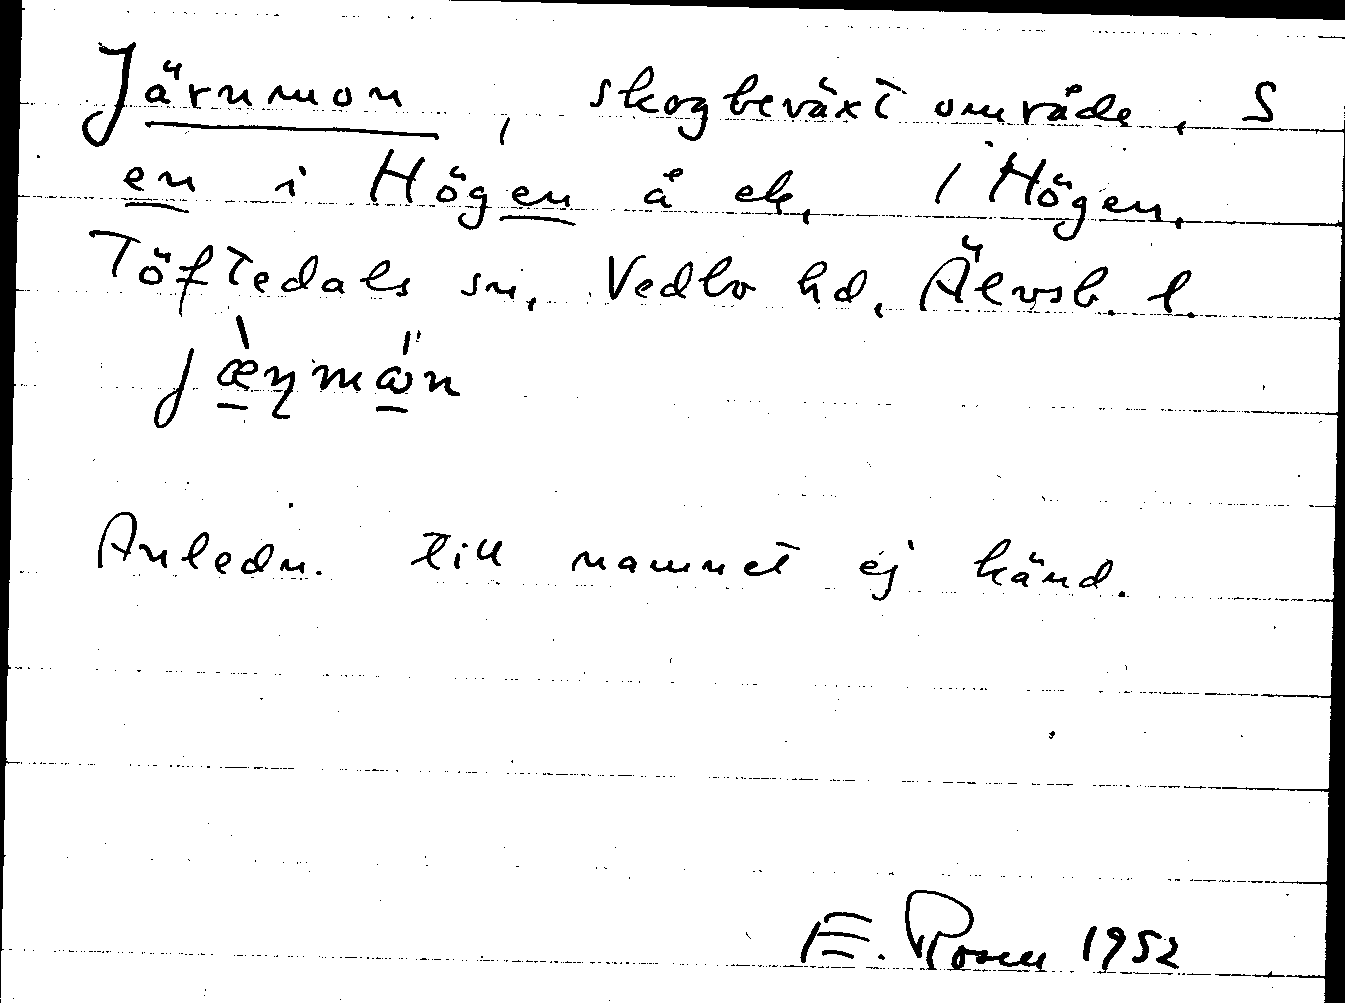 Järnmon, skogbeväxt område, S
en i Högen å ek. 1 Högen,
Töftedals sn, Vedbo hd, Älvsb. l.
Anledn. till namnet ej känd.
E. Rosen 1952